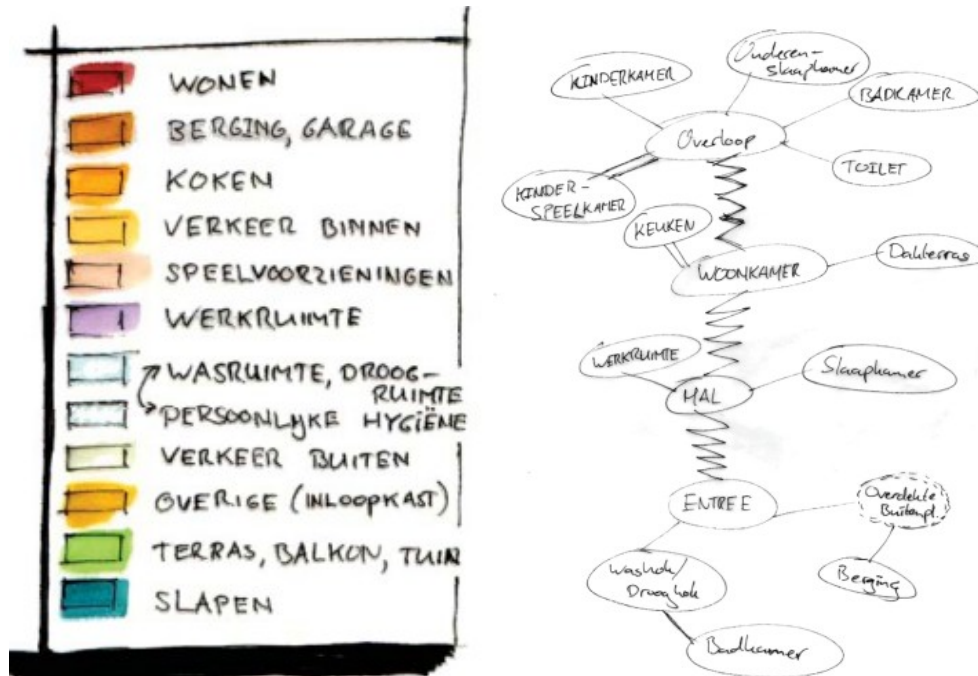 WONEN
BERGING, GARAGE
KOKEN
VERKEER BINNEN
SPEELVOORZIENINGEN
WERKRUIMTE
WASRUIMTE, DROOG-
RUIMTE
PERSOONLYKE HYGIËNE
VERKEER BUITEN
OVERIGE (INLOOPKAST)
TERRAS, BALKON, TUIN
SLAPEN
KINDERKAMER
Ouderen-
slaapkamer
BADKAMER
Overloop
TOILET
KINDER-
SPEELKAMER
KEUKEN
WOONKAMER
Dakterras
WERKRUIMTE
Slaapkamer
HAL
ENTREE
Overdekte
Buitenpl.
Washok/
Drooghok
Berging
Badkamer